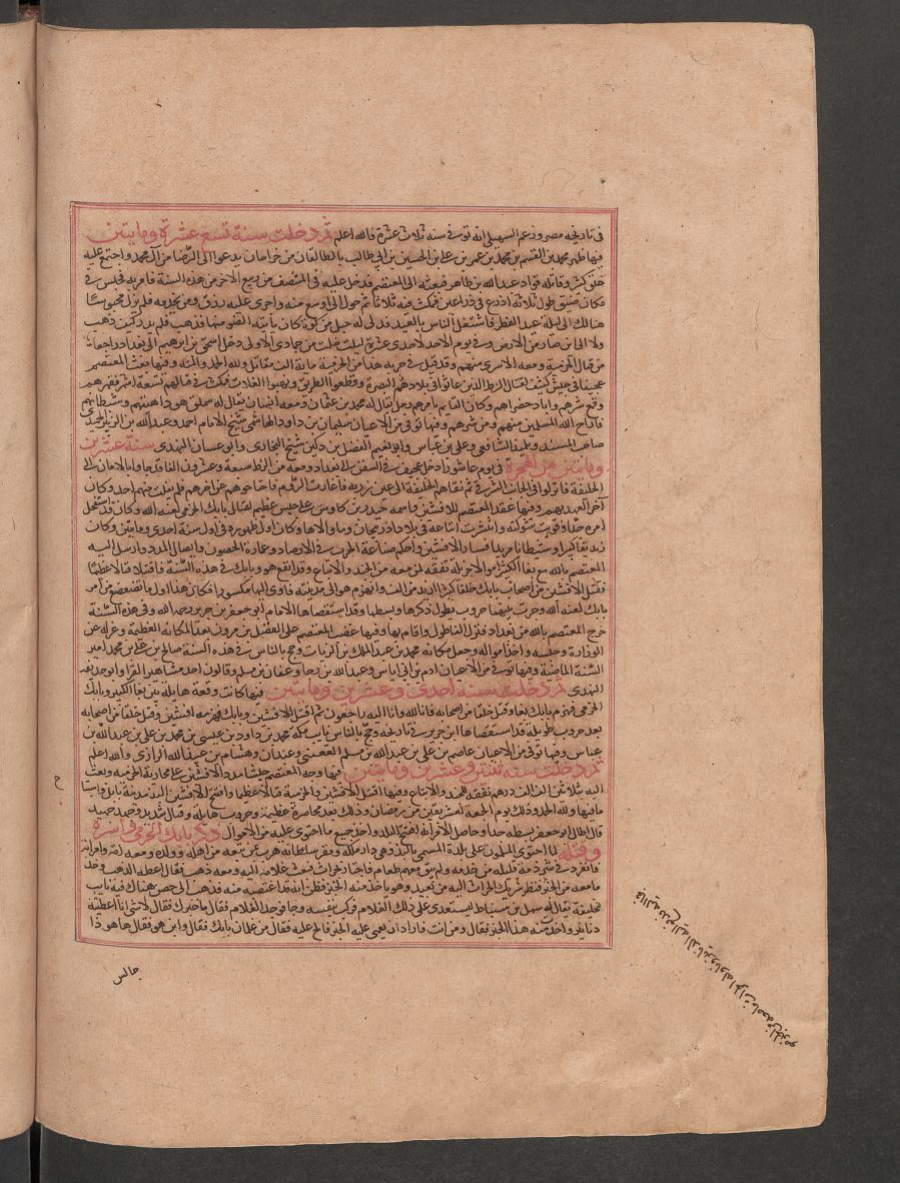 في تاريخه مصر وزعم السهيلي انه توفي في سنه ثلاث عشرة فالله اعلم ثم دخلت سنة تسع عشرة ومايتين
فيها ظهر محمد بن القسم بن محمد بن عمر بن علي بن الحسين بن ابي طالب بالطالقان من خراسان يدعوا الى الرضا من آل محمد واجتمع عليه
خلق كثير وقاتله قواد عبد الله بن طاهر فبعث به الى المعتصم فدخل عليه في المنتصف من ربيع الاخر من هذه السنة فامر به فحبس في
مكان ضيق طول ثلاثة اذرع في ذراعين فمكث فيه ثلاثا ثم حول الى اوسع منه واجري عليه رزق ومن يخدمه فلم يزل محبوسا
هنالك الى ليلة عيد الفطر فاشتغل الناس بالعيد فدلي له حبل من كوة كان ياتيه الضو منها فذهب فلم يدر كيف ذهب
ولا الى اين صار من الارض وفي يوم الاحد لاحدى عشرة ليلة خلت من جمادي الاولى دخل اسحق بن ابرهيم الى بغداد راجعا
من قتال الخرمية ومعه الاسرى منهم وقد قتل في حربه هذا من الخرمية ماية الف مقاتل ولله الحمد والمنه وفيها بعث المعتصم
عجيفا في جيش كثيف لقتال الزط الذين عاثوا في بلاد البصرة وقطعوا الطريق ونهبوا الغلات فمكث في قتالهم تسعة اشهر فقهرهم
وقمع شرهم واباد خضراهم وكان القايم بامرهم رجل يقال له محمد بن عثمان ومعه انسان يقال له سملق وهو داهيتهم وشيطانهم
فاراح الله المسلمين منهم ومن شرهم وفيها توفي من الاعيان سليمان بن داود الهاشمي شيخ الامام احمد وعبد الله بن الزبير الحميدي
صاحب المسند وتلميذ الشافعي وعلي بن عياش وابو نعيم الفضل بن دكين شيخ البخاري وابو غسان النهدي سنة عشرين
ومايتين من الهجرة في يوم عاشورا دخل عجيف في السفن الى بغداد ومعه من الزط سبعة وعشرون الفا قد جاوا بالامان الى
الخليفة فانزلوا في الجانب الشرقي ثم نفاهم الخليفة الى عين زربه فاغارت الروم فاجتاحوهم عن اخرهم فلم يفلت منهم احد وكان
آخر العهد بهم وفيها عقد المعتصم للافشين واسمه حيدر بن كاوس على جيش عظيم لقتال بابك الخرمي لعنه الله وكان قد استفحل
امره جدا وقويت شوكته وانتشرت اتباعه في بلاد اذربيجان وما والاها وكان اول ظهوره في اول سنة احدى ومايتين وكان
زنديقا كبيرا وشيطانا مريدا فسار الافشين وقد احكم صناعة الحرب في الارصاد وعمارة الحصون وايصال المدد وارسل اليه
المعتصم بالله مع بغا الكبير اموالا جزيلة نفقه لمن معه من الجند والاتباع وقد التقي هو وبابك في هذه السنة فاقتتلا قتالا عظيما
فقتل الافشين من اصحاب بابك خلقا كثيرا ازيد من الف وانهزم هو الى مدينته فاوى اليها مكسورا فكان هذا اول ما تضعضع من امر
بابك لعنه الله وجرت بينهما حروب يطول ذكرها وبسطها وقد استقصاها الامام ابو جعفر بن جرير رحمه الله وفي هذه السنة
خرج المعتصم بالله من بغداد فنزل القاطول واقام بها وفيها غضب المعتصم على الفضل بن مرون بعد المكانه العظيمة وعزله عن
الوزارة وحبسه واخذ امواله وجعل مكانه محمد بن عبد الملك بن الزيات وحج بالناس في هذه السنة صالح بن علي بن محمد امير
السنة الماضية وفيها توفي من الاعيان ادم بن ابي اياس وعبد الله بن رجا وعفان بن مسلم وقالون احد مشاهير القرا وابو حذيفه
النهدي ثم دخلت سنة احدى وعشرين ومايتين فيها كانت وقعة هايلة بين بغا الكبير وبابك
الخرمي فهزم بابك بغا وقتل خلقا من اصحابه فانا لله وانا اليه راجعون ثم اقتتل الافشين وبابك فهزمه افشين وقتل خلقا من اصحابه
بعد حروب طويلة قد استقصاها ابن جرير في تاريخه وحج بالناس نايب مكة محمد بن داود بن عيسى بن محمد بن علي بن عبد الله بن
عباس وفيها توفي من الاعيان عاصم بن علي بن عبد الله بن مسلم القعنبي وعبدان وهشام بن عبيد الله الرازي والله اعلم
ثم دخلت سنة ثنتين وعشرين ومايتين فيها وجه المعتصم جيشا مددا للافشين على محاربة الخرميه وبعث
اليه بثلاثين الف الف درهم نفقه للجند والاتباع وفيها اقتتل الافشين والخرمية قتالا عظيما وافتتح الافشين البذ مدينة بابك واستباح
ما فيها ولله الحمد وذلك يوم الجمعه لعشر بقين من رمضان وذلك بعد محاصرة عظيمة وحروب هايلة وقتال شديد وجهد جهيد
قد اطال ابو جعفر بسطه جدا وحاصل الامر انه افتتح البلد واخذ جميع ما احتوى عليه من الاموال ذكر بابك الخرمي في اسره
وقتله لما احتوى المسلمون على بلدة المسمى بالبذ وهي دار ملكه ومقر سلطانه هرب بمن معه من اهله وولده ومعه امه وامراته
فانفرد في شرذمة قليلة من خدمه ولم يبق معهم طعام فاجتاز بحراث فبعث غلامه اليه ومعه ذهب فقال اعطه الذهب وخذ
ما معه من الخبز فنظر شريك الحراث اليه من بعيد وهو ياخذ منه الخبز فظن انه قد اغتصبه منه فذهب الى حصن هناك فيه نايب
للخليفة يقال له سهل بن سنباط ليستعدي على ذلك الغلام فركب بنفسه وجا فوجد الغلام فقال ما خبرك فقال لا شي انما اعطيته
دنانير واخذت منه هذا الخبز فقال ومن انت فاراد ان يعمي عليه الخبر فالح عليه فقال من غلمان بابك فقال واين هو فقال ها هو ذا
جالس